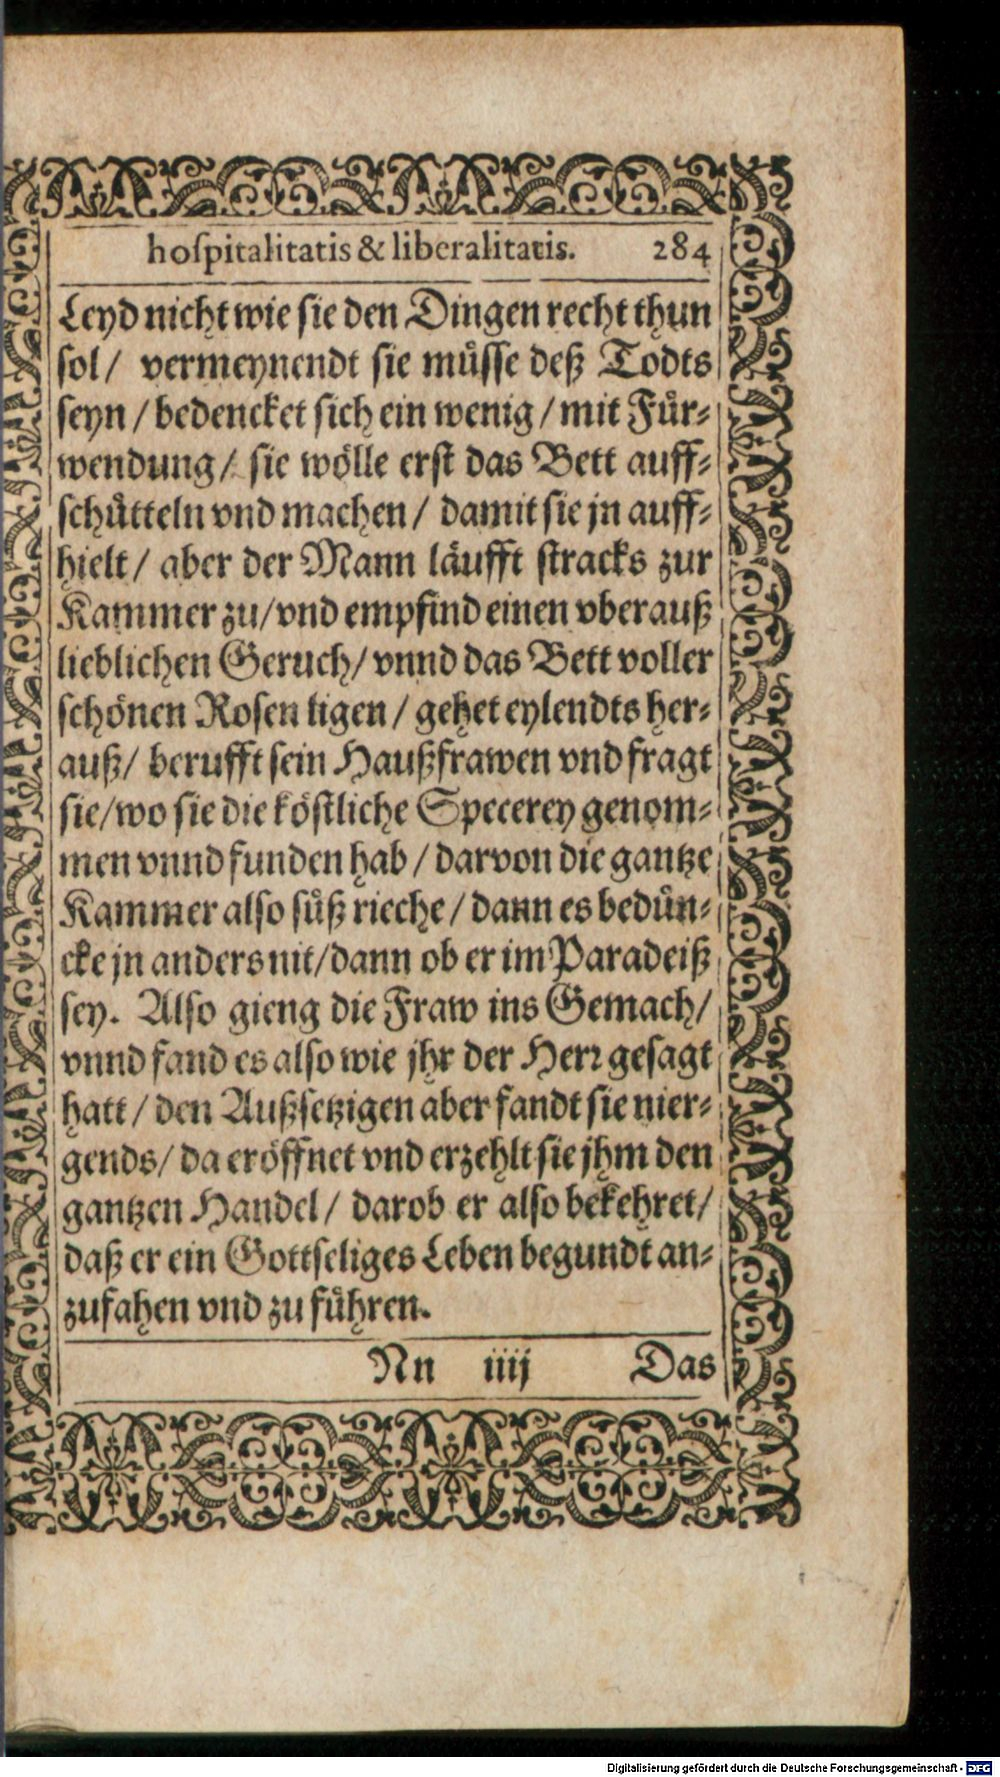 hospitalitatis & liberalitatis. 284
Leyd nicht wie sie den Dingen recht thun
sol / vermeynendt sie müsse deß Todts
seyn / bedencket sich ein wenig / mit Für-
wendung / sie wölle erst das Bett auff-
schütteln vnd machen / damit sie jn auff-
hielt / aber der Mann läufft stracks zur
Kammer zu / vnd empfind einen vberauß
lieblichen Geruch / vnnd das Bett voller
schönen Rosen ligen / gehet eylendts her-
auß / berufft sein Haußfrawen vnd fragt
sie / wo sie die köstliche Specerey genom-
men vnnd funden hab / darvon die gantze
Kammer also süß rieche / dann es bedün-
cke jn anders nit / dann ob er im Paradeiß
sey. Also gieng die Fraw ins Gemach /
vnnd fand es also wie jhr der Herr gesagt
hatt / den Außsetzigen aber fandt sie nier-
gends / da eröffnet vnd erzehlt sie jhm den
gantzen Handel / darob er also bekehret /
daß er ein Gottseliges Leben begundt an-
zufahen vnd zu führen.
Nn iiij Das
Digitalisierung gefördert durch die Deutsche Forschungsgemeinschaft - DFG